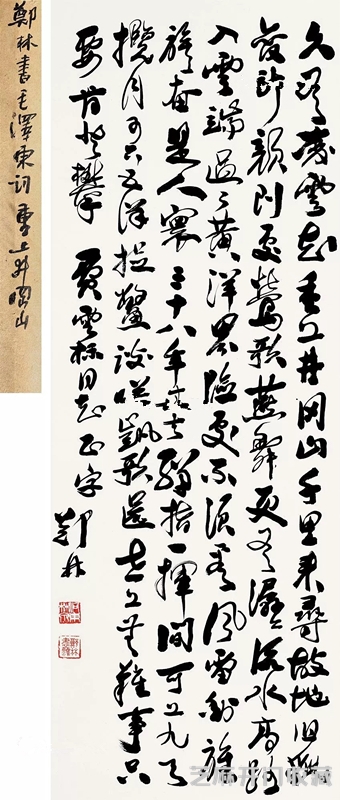 鄭林書毛澤東詞重上井岡山
久有凌雲志重上井冈山千里来尋故地旧貌
變新颜到處鶯歌燕舞更有潺潺流水高路
入雲端過了黄洋界險處不須看風雷動旌
旗奋是人寰三十八年过去彈指一揮間可上九天
攬月可下五洋捉鱉談笑凱歌還世上無難事只
要肯登攀 雲标同志正字
鄭林